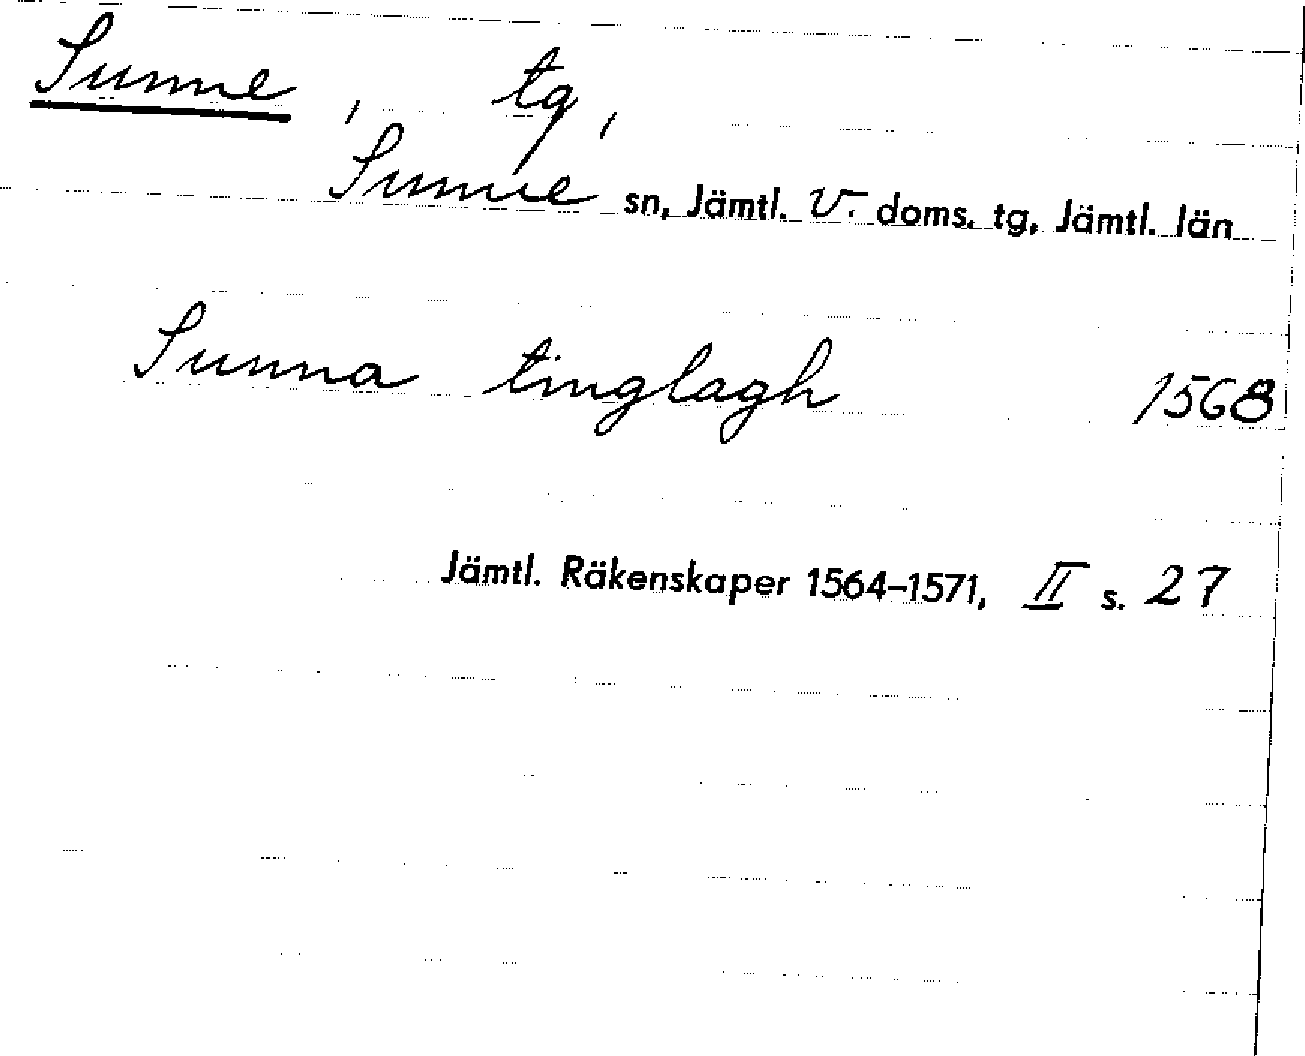 Sunne, tg,
Sunne sn, Jämtl. V. doms. tg, Jämtl. län
Sunna tinglagh 1568
Jämtl. Räkenskaper 1564–1571, II s. 27